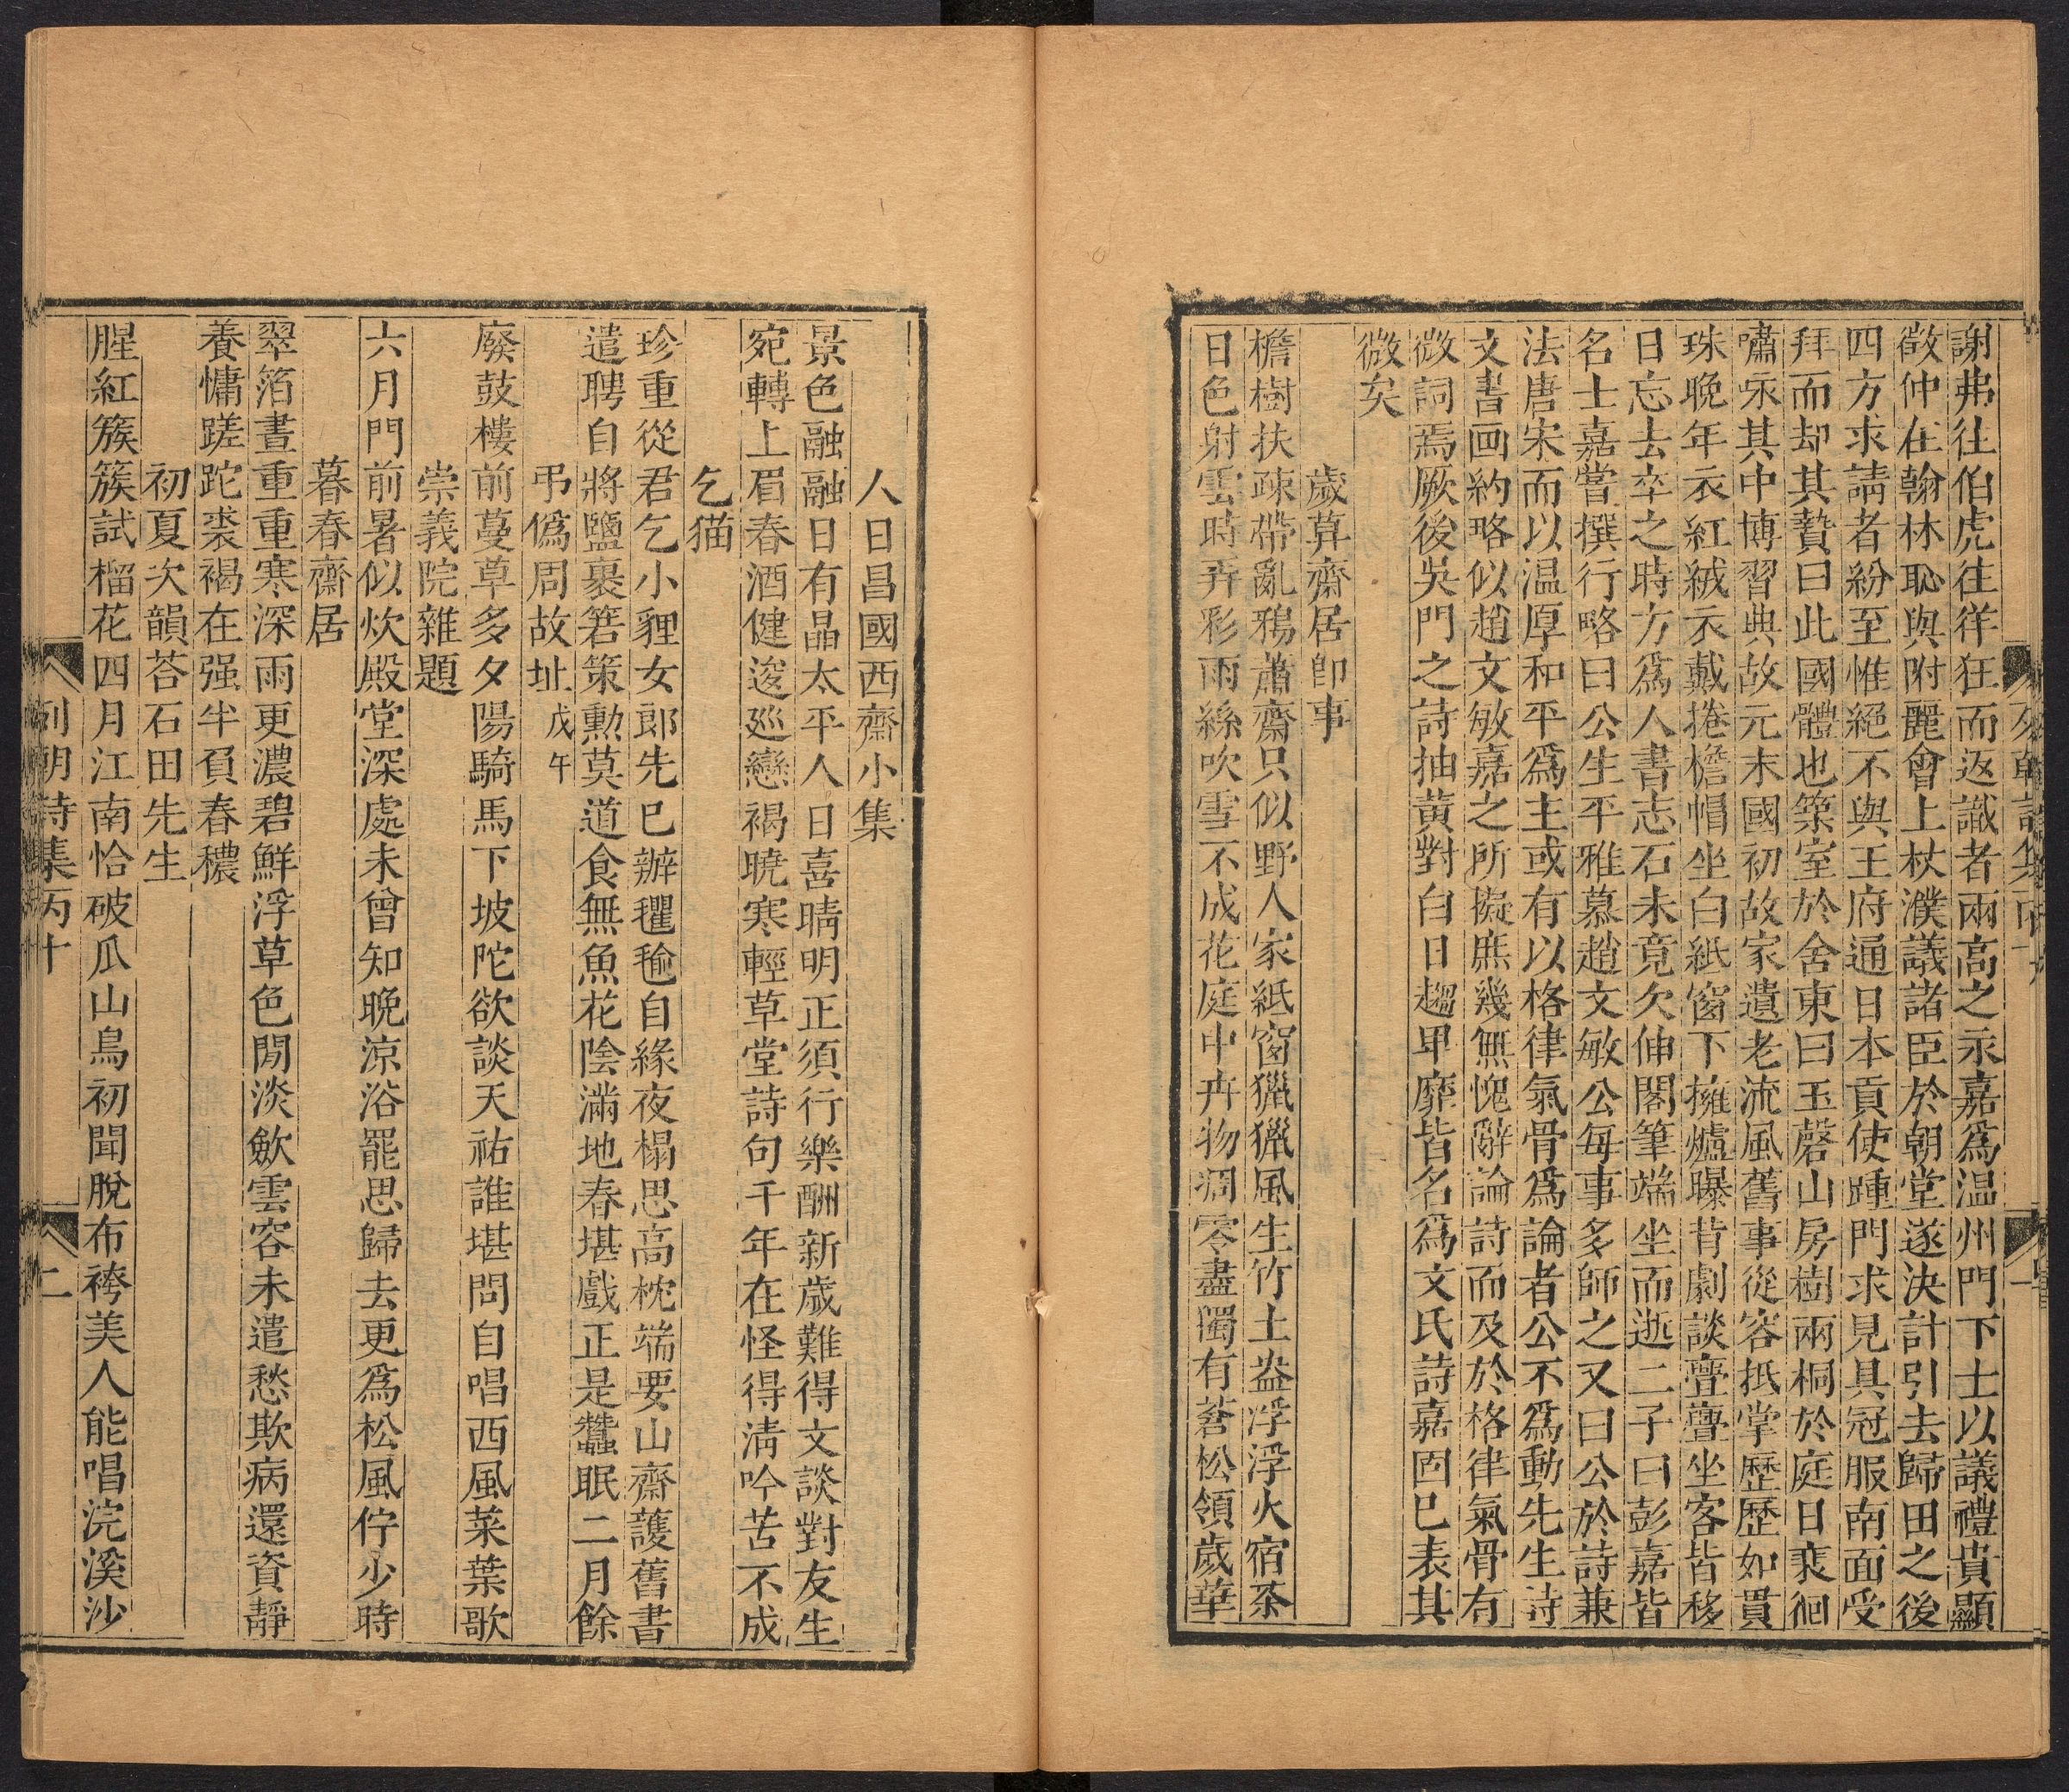 謝弗往伯虎往徉狂而返識者兩高之永嘉爲温州門下士以議禮貴顯
徵仲在翰林恥與附麗會上杖濮議諸臣於朝堂遂決計引去歸田之後
四方求請者紛至惟絕不與王府通日本貢使踵門求見具冠服南面受
拜而却其贄曰此國體也築室於舍東曰玉磬山房樹兩桐於庭日裵徊
嘯永其中博習典故元末國初故家遺老流風舊事從容抵掌歷歷如貫
珠晚年衣紅絨衣戴捲檐帽坐白紙窗下擁爐曝背劇談亹亹坐客皆移
日忘去卒之時方爲人書志石未竟欠伸閣筆端坐而逝二子曰彭嘉皆
名士嘉嘗撰行略曰公生平雅慕趙文敏公每事多師之又曰公於詩兼
法唐宋而以温厚和平爲主或有以格律氣骨爲論者公不爲動先生詩
文書画約略似趙文敏嘉之所擬庶幾無愧辭論詩而及於格律氣骨有
微詞焉厥後吳門之詩抽黃對白日趨卑靡皆名爲文氏詩嘉固已表其
微矣
歲暮齋居卽事
檐樹扶疎帶亂鴉蕭齋只似野人家紙窗獵獵風生竹土盎浮浮火宿茶
日色射雲時弄彩雨絲吹雪不成花庭中卉物凋零盡獨有蒼松領歲華
人日昌國西齋小集
景色融融日有晶太平人日喜晴明正須行樂酬新歲難得文談對友生
宛轉上眉春酒健逡廵戀褐曉寒輕草堂詩句千年在怪得淸吟苦不成
乞猫
珍重從君乞小貍女郎先已辦氍毹自緣夜榻思高枕端要山齋護舊書
遣聘自將鹽裹箬策勳莫道食無魚花陰滿地春堪戲正是蠶眠二月餘
弔僞周故址戊午
廢鼓樓前蔓草多夕陽騎馬下坡陀欲談天祐誰堪問自唱西風菜葉歌
崇義院雜題
六月門前暑似炊殿堂深處未曾知晚涼浴罷思歸去更爲松風佇少時
暮春齋居
翠箔晝重重寒深雨更濃碧鮮浮草色閒淡歛雲容未遣愁欺病還資靜
養慵蹉跎裘褐在强半負春穠
初夏次韻荅石田先生
腥紅簇簇試榴花四月江南恰破瓜山鳥初聞脫布袴美人能唱浣溪沙
列朝詩集丙十 二